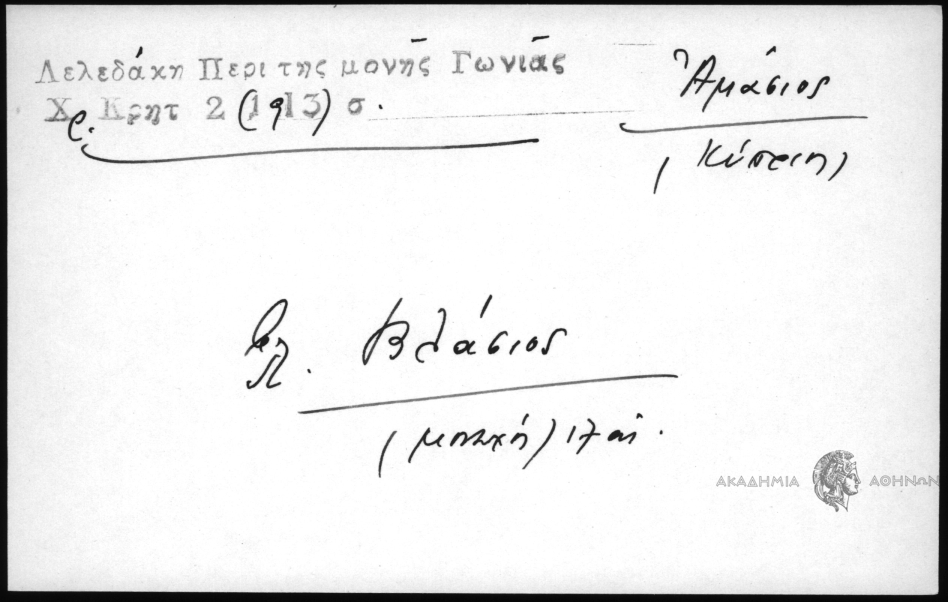 Λελεδάκη Περι της μονής Γωνιάς
Χρ. Κρητ 2 (1913) σ.
Ἀμάσιος
(Κύπριος)
Βλάσιος
(μοναχός) 17 αἰ.
ΑΚΑΔΗΜΙΑ ΑΘΗΝΩΝ